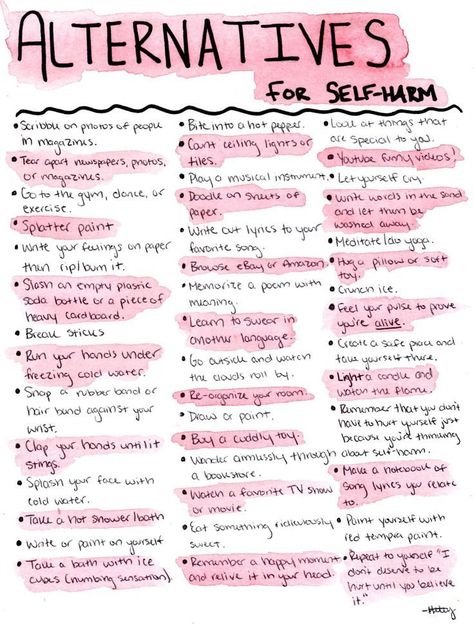 ALTERNATIVES
FOR SELF-HARM
• Scribble on photos of people
in magazines.
• Tear apart newspapers, photos,
or magazines.
• Go to the gym, dance, or
exercise.
• Splatter paint
• Write your feelings on paper
then rip/burn it.
• Slash an empty plastic
soda bottle or a piece of
heavy cardboard.
• Break sticks
• Run your hands under
freezing cold water.
• Snap a rubber band or
hair band against your
wrist.
• Clap your hands until it
stings.
• Splash your face with
cold water.
• Take a hot shower/bath
• Write or paint on yourself
• Take a bath with ice
cubes (numbing sensation)
• Bite into a hot pepper.
• Count ceiling lights or
tiles.
• Play a musical instrument.
• Doodle on sheets of
paper.
• Write out lyrics to your
favorite song.
• Browse eBay or Amazon.
• Memorize a poem with
meaning.
• Learn to swear in
another language.
• Go outside and watch
the clouds roll by.
• Re-organize your room.
• Draw or paint.
• Buy a cuddly toy
• Wander aimlessly through
a bookstore.
• Watch a favorite TV show
or movie.
• Eat something ridiculously
sweet.
• Remember a happy moment
and relive it in your head.
• Look at things that
are special to you.
• Youtube funny videos!
• Let yourself cry.
• Write words in the sand
and let them be
washed away.
• Meditate/do yoga.
• Hug a pillow or soft
toy.
• Crunch ice.
• Feel your pulse to prove
you're alive.
• Create a safe place and
take yourself there.
• Light a candle and
watch the flame.
• Remember that you don't
have to hurt yourself just
because you're thinking
about self-harm.
• Make a notebook of
song lyrics you relate
to.
• Paint yourself with
red tempra paint.
• Repeat to yourself "I
don't deserve to be
hurt until you believe
it."